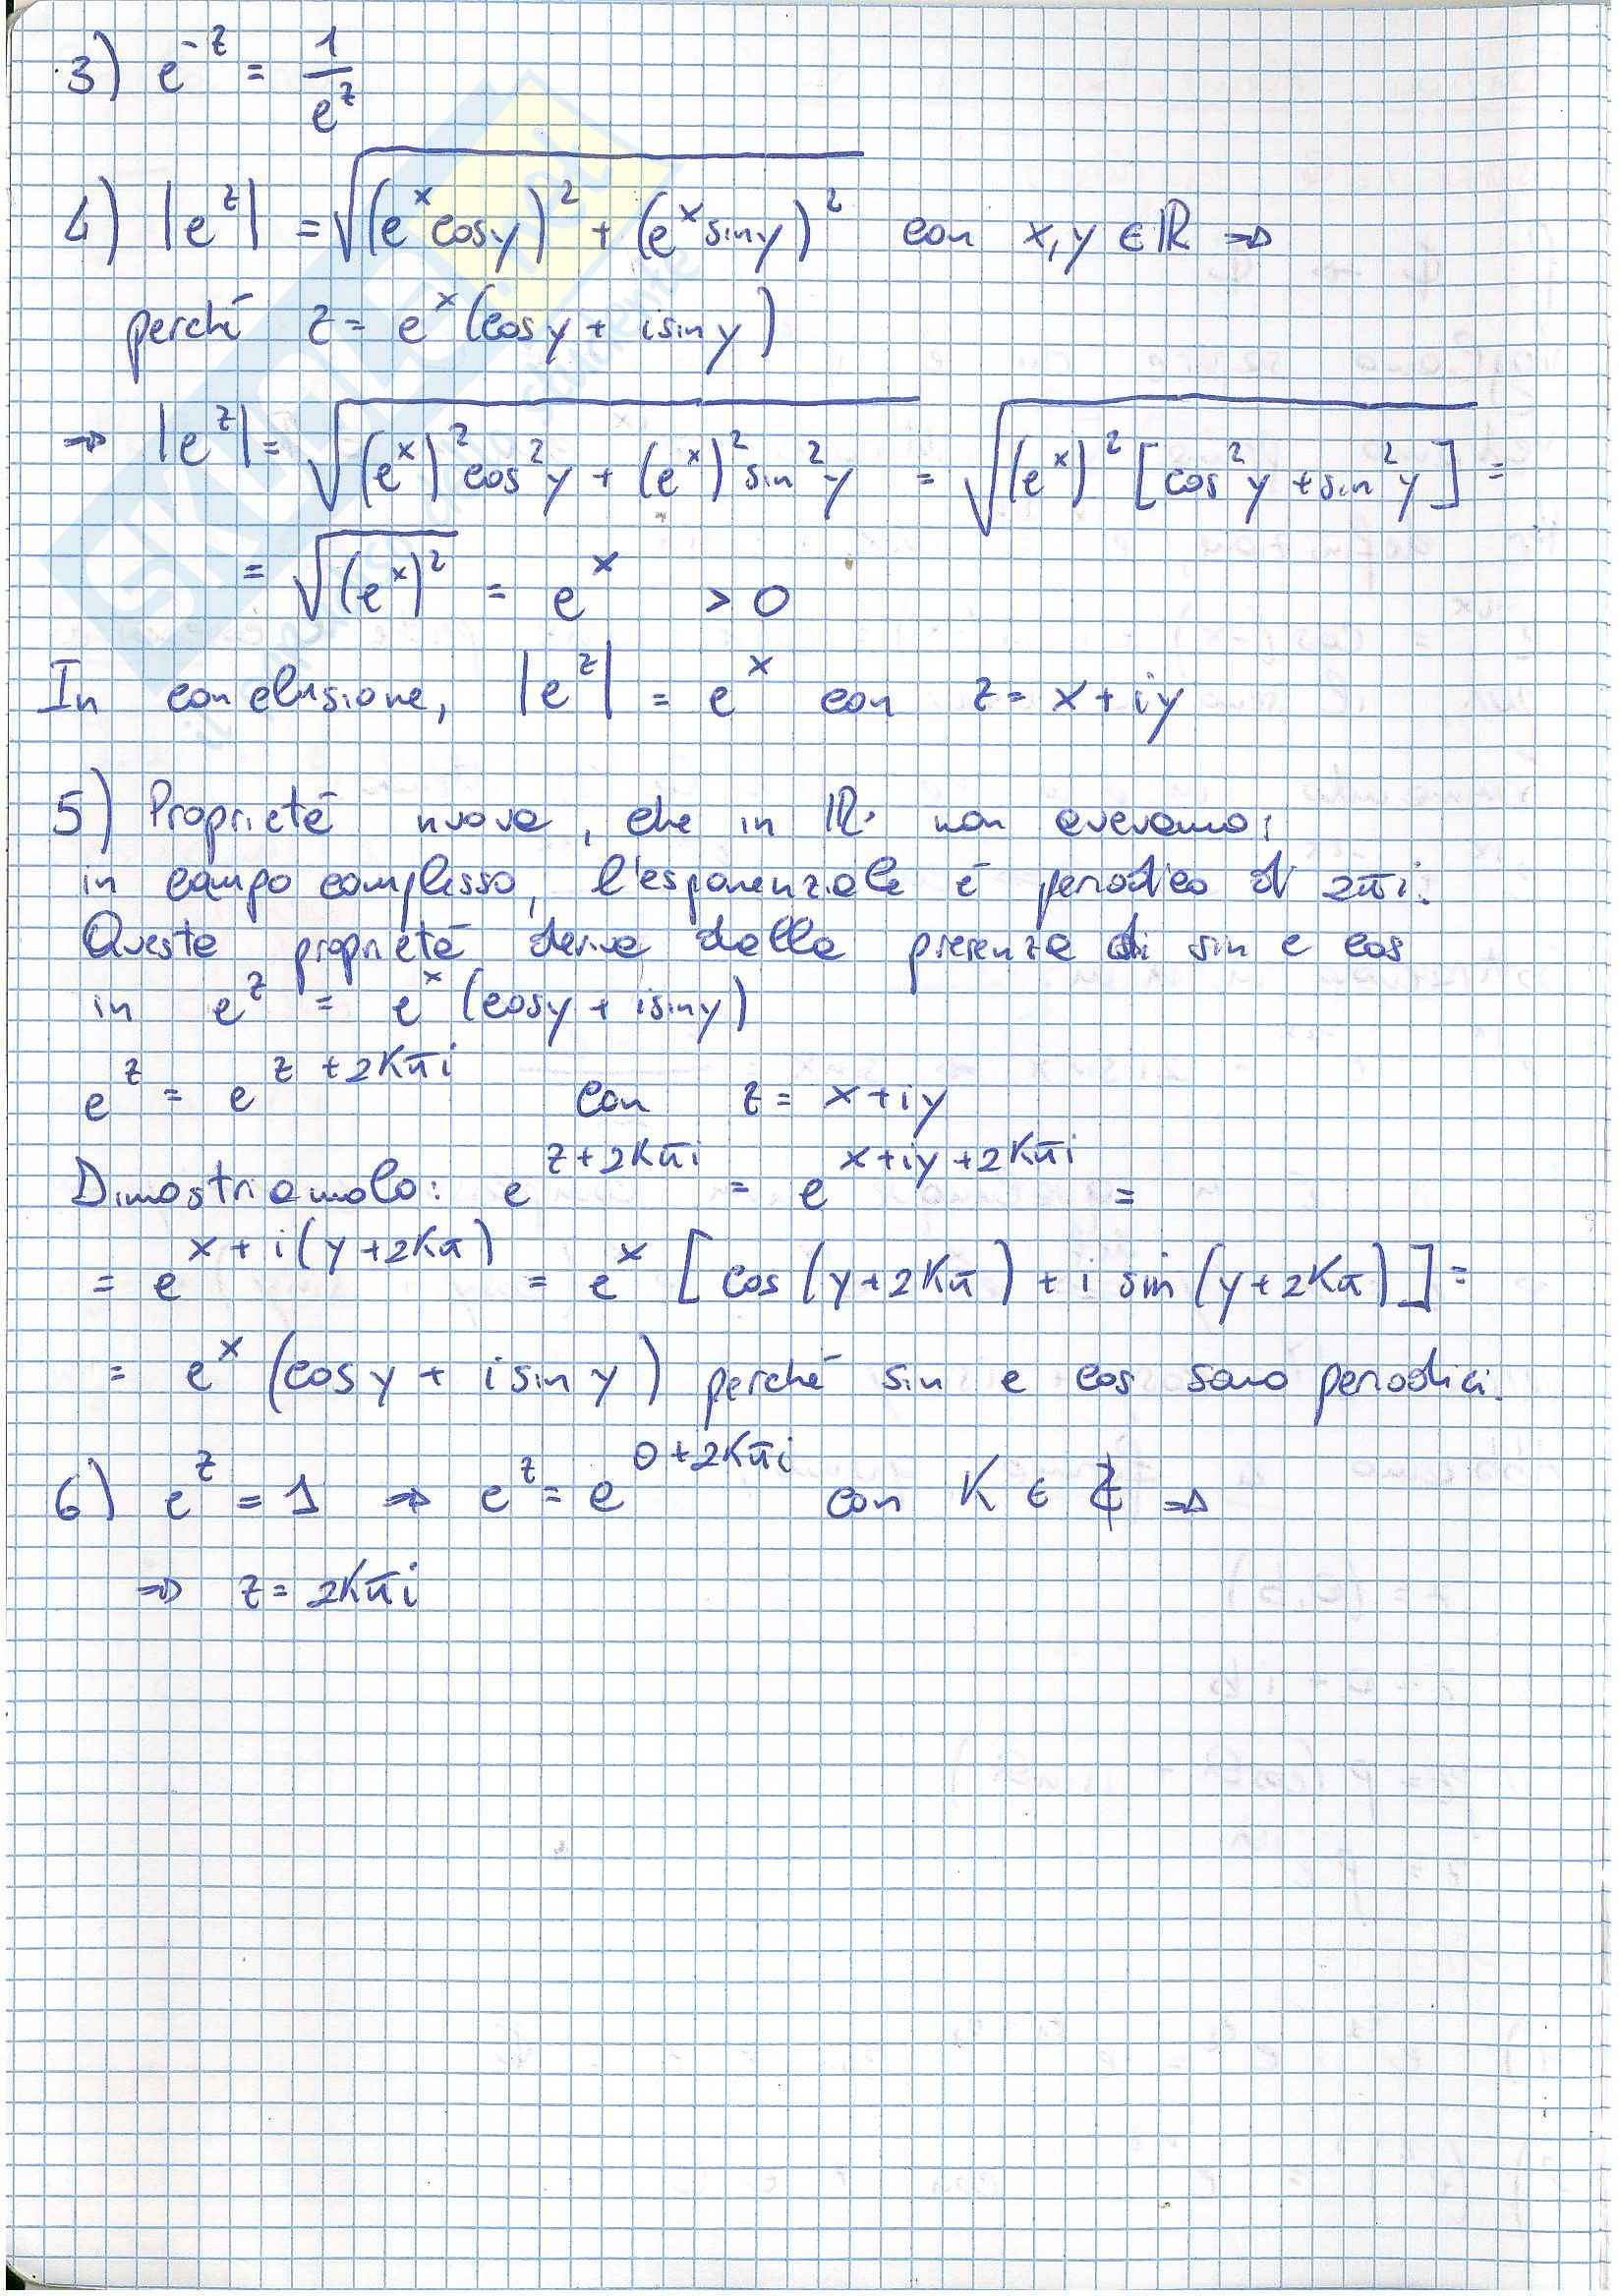 3) e^-z = 1/e^z
4) |e^z| = √((e^x cosy)^2 + (e^x siny)^2) con x,y ∈ ℝ ⇒
perché z = e^x (cosy + isiny)
⇒ |e^z| = √((e^x)^2 cos^2y + (e^x)^2 sin^2y) = √((e^x)^2 [cos^2y + sin^2y]) =
= √((e^x)^2) = e^x > 0
In conclusione, |e^z| = e^x con z = x+iy
5) Proprietà nuova, che in ℝ non avevamo:
in campo complesso, l'esponenziale è periodico di 2πi.
Questa proprietà deriva dalla presenza di sin e cos
in e^z = e^x (cosy + isiny)
e^z = e^(z+2Kπi) con z = x+iy
Dimostriamolo: e^(z+2Kπi) = e^(x+iy+2Kπi) =
= e^(x+i(y+2Kπ)) = e^x [cos(y+2Kπ) + i sin(y+2Kπ)] =
= e^x (cosy + isiny) perché sin e cos sono periodici.
6) e^z = 1 ⇒ e^z = e^(0+2Kπi) con K ∈ ℤ ⇒
⇒ z = 2Kπi